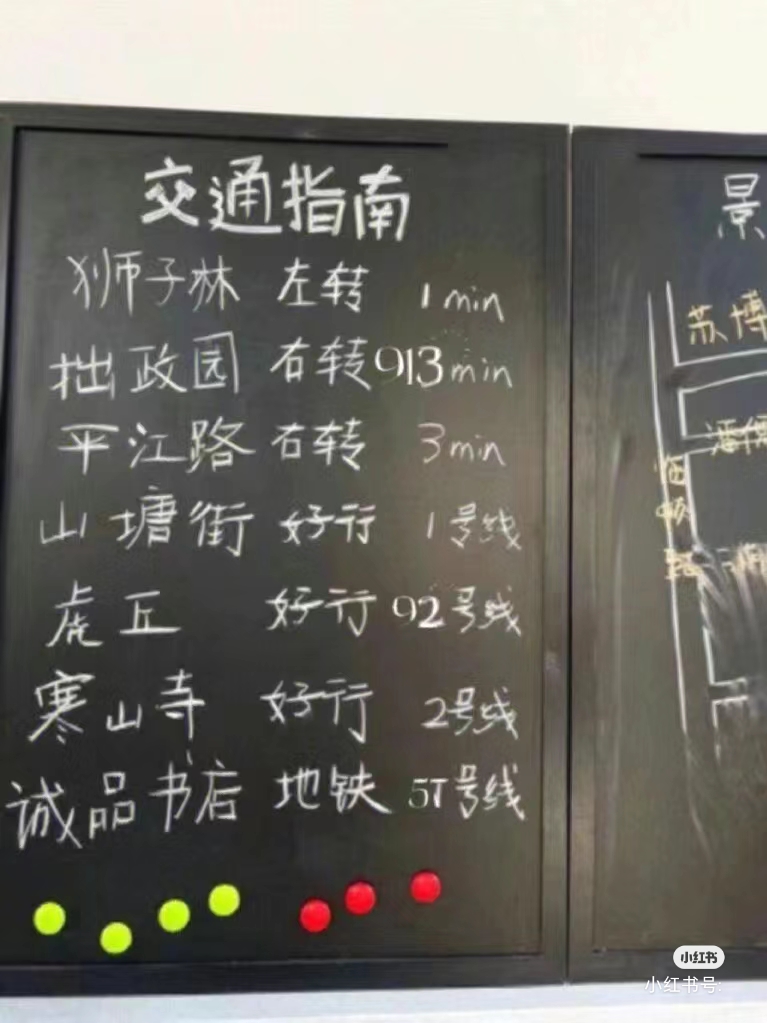 交通指南
狮子林 左转 1min
拙政园 右转913min
平江路 右转 3min
山塘街 好行 1号线
虎丘 好行 92号线
寒山寺 好行 2号线
诚品书店 地铁 5T号线
景
苏博
小红书
小红书号: